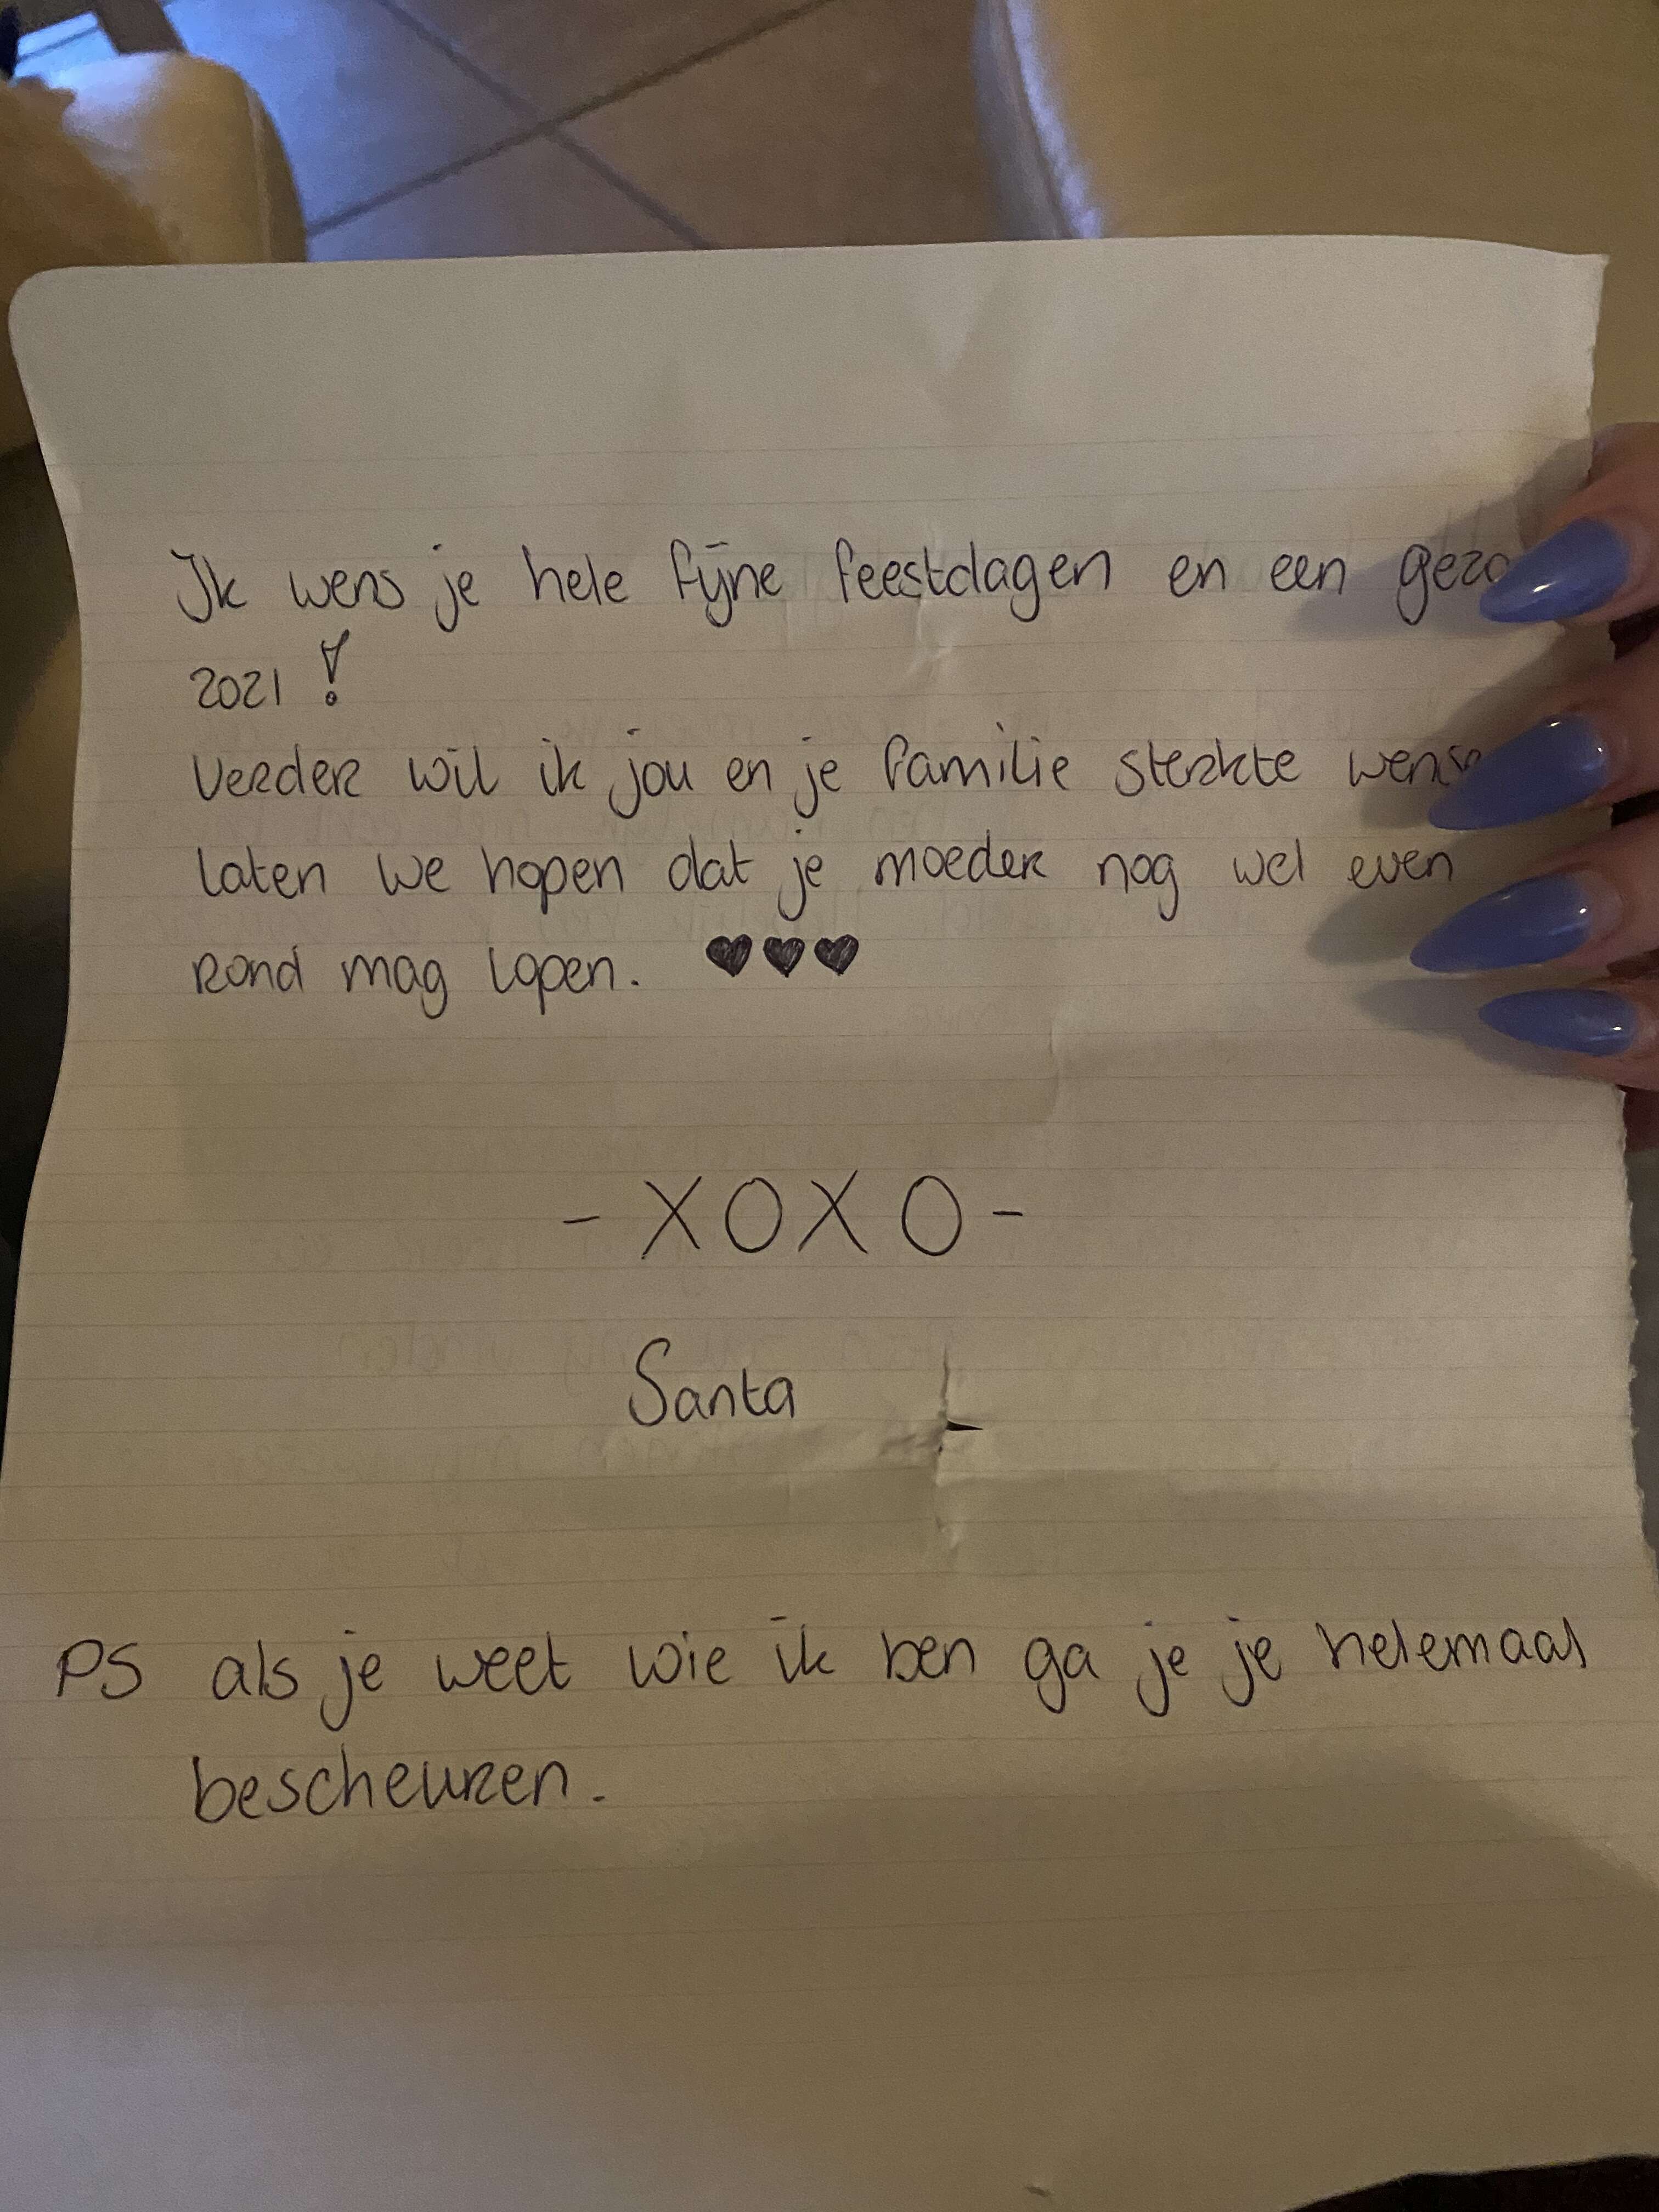 Ik wens je hele fijne feestdagen en een gezo
2021 !
Verder wil ik jou en je familie sterkte wense
laten we hopen dat je moeder nog wel even
rond mag lopen. ♥♥♥
- XOXO -
Santa
PS als je weet wie ik ben ga je je helemaal
bescheuren.